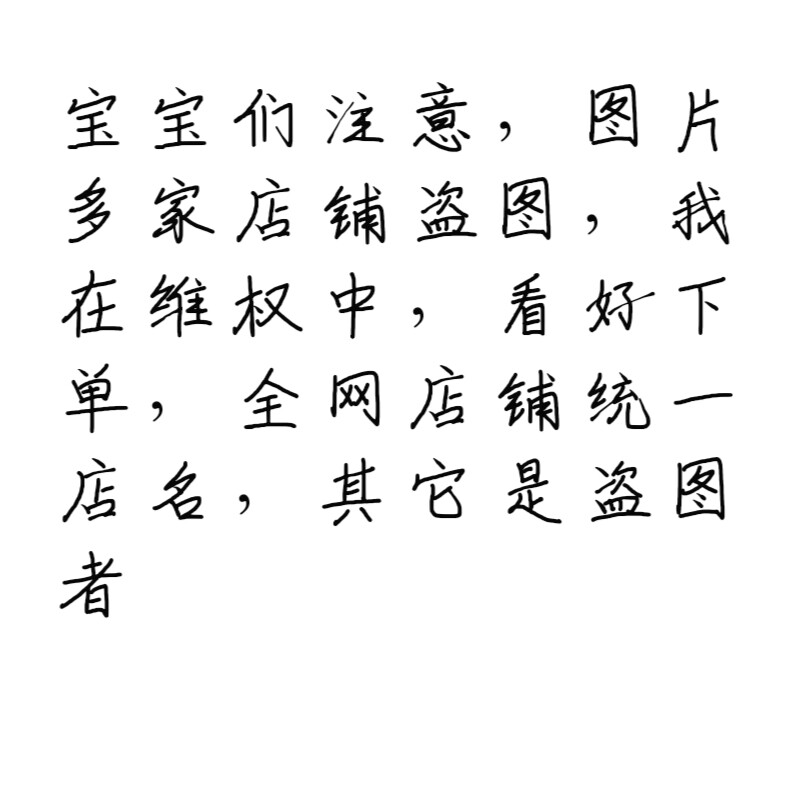 宝宝们注意，图片
多家店铺盗图，我
在维权中，看好下
单，全网店铺统一
店名，其它是盗图
者